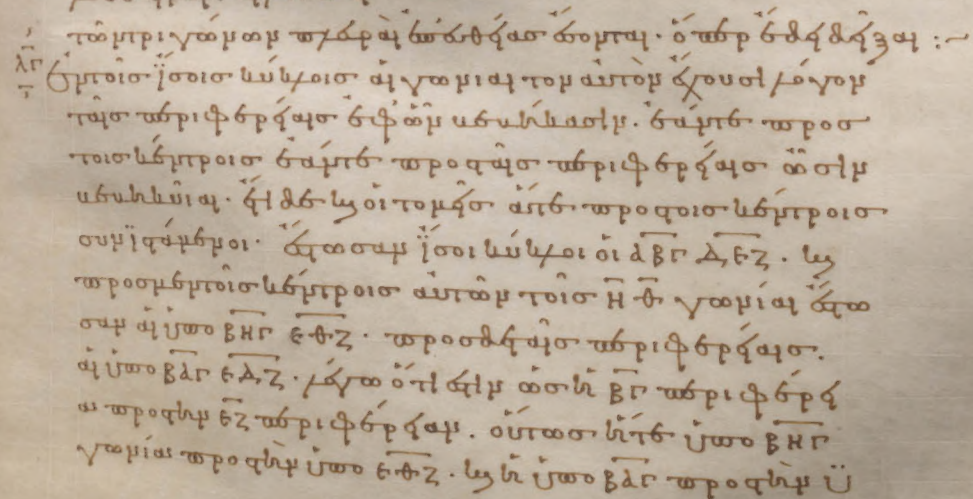 τῶν τριγώνων πλευραὶ ἐπ' εὐθείας ἔσονται· ὅπερ ἔδει δεῖξαι :~
λγ Ἐν τοῖς ἴσοις κύκλοις αἱ γωνίαι τὸν αὐτὸν ἔχουσι λόγον
ταῖς περιφερείαις ἐφ' ὧν βεβήκασιν· ἐάν τε πρὸς
τοῖς κέντροις ἐάν τε πρὸς ταῖς περιφερείαις ὦσιν
βεβηκυῖαι· ἔτι δὲ καὶ οἱ τομεῖς ἅτε πρὸς τοῖς κέντροις
συνϊστάμενοι· ἔστωσαν ἴσοι κύκλοι οἱ ΑΒΓ ΔΕΖ· καὶ
πρὸς μὲν τοῖς κέντροις αὐτῶν τοῖς Η Θ γωνίαι ἔστω
σαν αἱ ὑπὸ ΒΗΓ ΕΘΖ· πρὸς δὲ ταῖς περιφερείαις.
αἱ ὑπὸ ΒΑΓ ΕΔΖ· λέγω ὅτι ἐστὶν ὡς ἡ ΒΓ περιφέρει
α πρὸς τὴν ΕΖ περιφέρειαν. οὕτως ἥ τε ὑπὸ ΒΗΓ
γωνία πρὸς τὴν ὑπὸ ΕΘΖ· καὶ ἡ ὑπὸ ΒΑΓ πρὸς τὴν ὑ